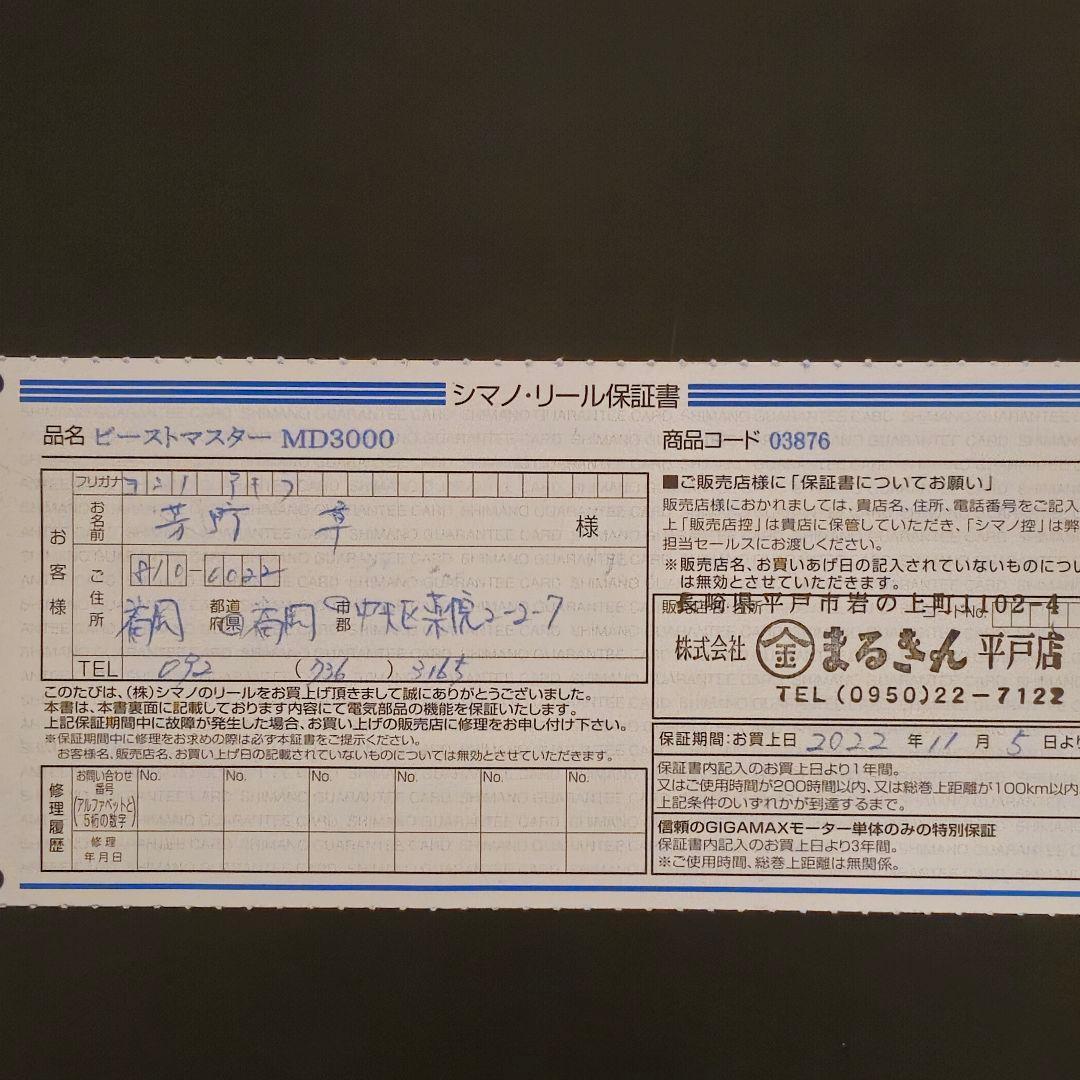 シマノ・リール保証書
品名 ビーストマスター MD3000
商品コード 03876
フリガナ ヨシノ アキフ
お客様
お名前 芳野 章 様
ご住所 810-0022
福岡 都道府県 福岡 市郡 中央区薬院2-2-7
TEL 092 (736) 3165
このたびは、(株)シマノのリールをお買上げ頂きまして誠にありがとうございました。
本書は、本書裏面に記載しております内容にて電気部品の機能を保証いたします。
上記保証期間中に故障が発生した場合、お買い上げの販売店に修理をお申し付け下さい。
※保証期間中に修理をお求めの際は必ず本証書をご提示ください。
お客様名、販売店名、お買い上げ日の記載されていないものについては無効とさせていただきます。
修理履歴
お問い合わせ番号(アルファベットと5桁の数字) No. No. No. No. No. No.
修理年月日
■ご販売店様に「保証書についてお願い」
販売店様におかれましては、貴店名、住所、電話番号をご記入
上「販売店控」は貴店に保管していただき、「シマノ控」は弊
担当セールスにお渡しください。
※販売店名、お買いあげ日の記入されていないものについ
は無効とさせていただきます。
長崎県平戸市岩の上町1102-4
株式会社 金 まるきん 平戸店
TEL(0950)22-7122
保証期間:お買上日 2022 年 11 月 5 日より
保証書内記入のお買上日より1年間。
又はご使用時間が200時間以内、又は総巻上距離が100km以内
上記条件のいずれかが到達するまで。
信頼のGIGAMAXモーター単体のみの特別保証
保証書内記入のお買上日より3年間。
※ご使用時間、総巻上距離は無関係。